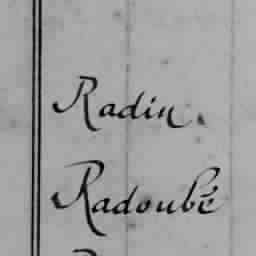 Radin.
Radoubé